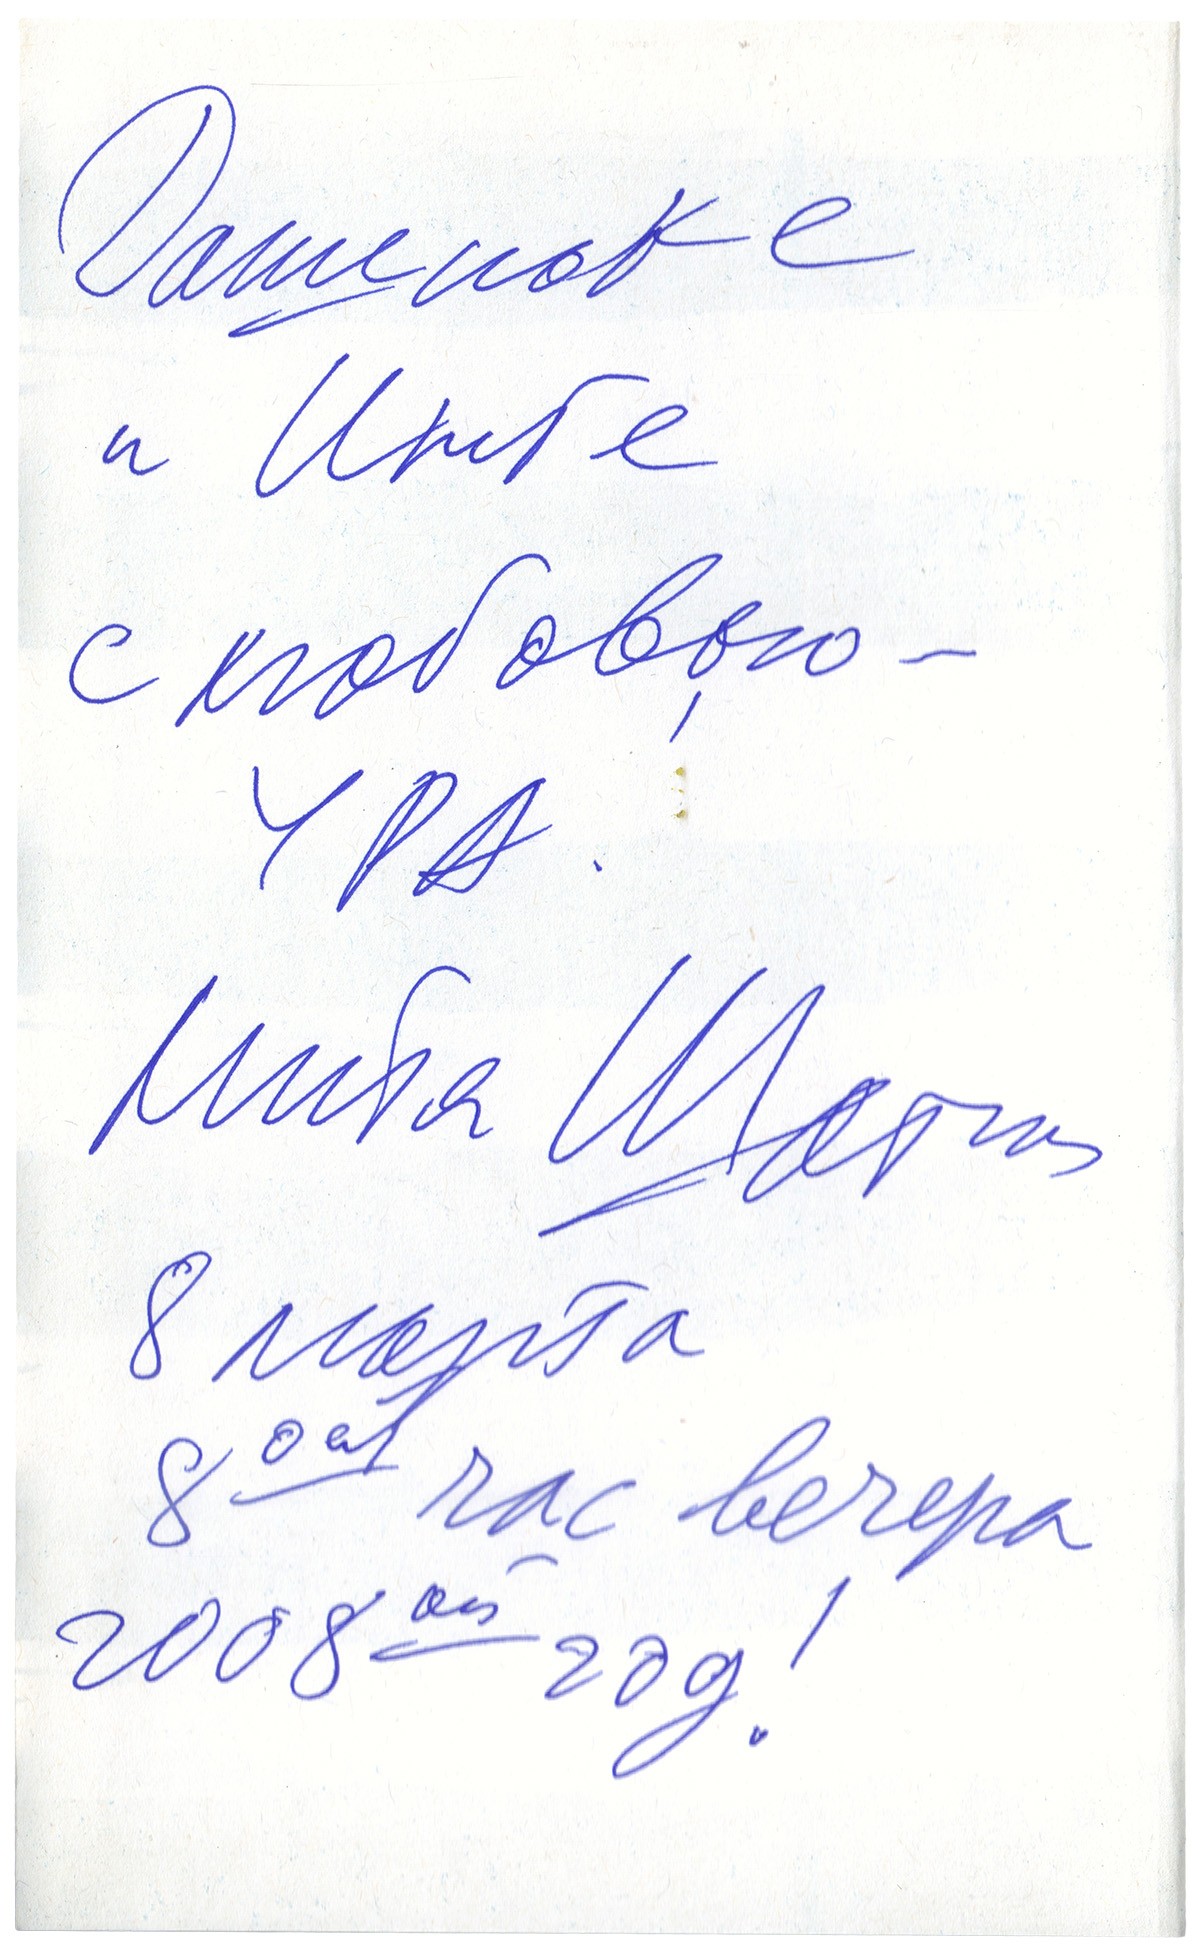 Дашеньке
и Инге
с любовью –
УРА!
Митя Шагин
8 марта
8ой час вечера
2008ой год!